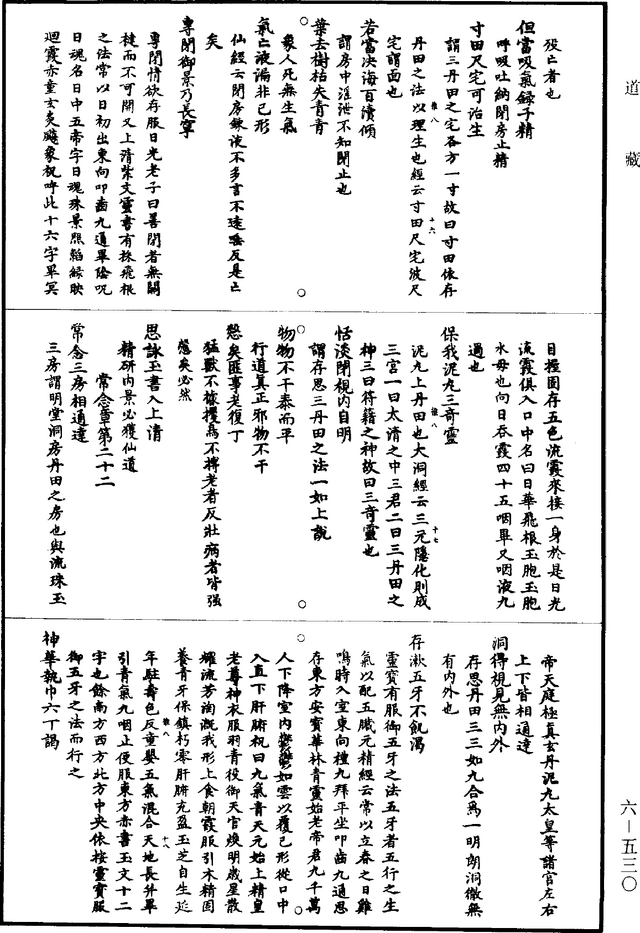 道藏
歿亡者也
但當吸氣錄子精
呼吸吐納閉房止精
寸田尺宅可治生
謂三丹田之宅各方一寸故曰寸田依存
丹田之法以理生也經云寸田尺宅彼尺
宅謂面也
若當決海百瀆傾
謂房中漼泄不知閉止也
葉去樹枯失青青
象人死無生氣
氣亡液漏非己形
仙經云閉房鍊液不多言不遠唾反是亡
矣
專閉御景乃長寧
專閉情欲存服日光老子曰善閉者無關
楗而不可開又上清紫文靈書有採飛根
之法常以日初出東向叩齒九通畢陰呪
日魂名日中五帝字曰日魂珠景照韜綠映
迴霞赤童玄炎飇象祝呼此十六字畢冥
目握固存五色流霞來接一身於是日光
流霞俱入口中名曰日華飛根玉胞玉胞
水母也向日吞霞四十五咽畢又咽液九
過也
保我泥丸三奇靈
泥丸上丹田也大洞經云三元隱化則成
三宮一曰太清之中三君二曰三丹田之
神三曰符籍之神故曰三奇靈也
恬淡閉視內自明
謂存思三丹田之法一如上說
物物不干泰而平
行道真正邪物不干
慤矣匪事老復丁
猛獸不據攫鳥不搏老者反壯病者皆強
慤矣必然
思詠玉書入上清
精研內景必獲仙道
常念章第二十二
常念三房相通達
三房謂明堂洞房丹田之房也與流珠玉
帝天庭極真玄丹泥丸太皇等諸宮左右
上下皆相通達
洞得視見無內外
存思丹田三三如九合為一明朗洞徹無
有內外也
存漱五牙不飢渴
靈寶有服御五牙之法五牙者五行之生
氣以配五臟元精經云常以立春之日雞
鳴時入室東向禮九拜平坐叩齒九通思
存東方安寶華林青靈始老帝君九千萬
人下降室內鬱鬱如雲以覆己形從口中
入直下肝腑祝曰九氣青天元始上精皇
老尊神衣服羽青役御天官煥明歲星散
耀流芳淘溉我形上食朝霞服引木精固
養青牙保鎮朽零肝腑充盈玉芝自生延
年駐壽色反童嬰五氣混合天地長并畢
引青氣九咽止便服東方赤書玉文十二
字也餘南方西方北方中央依按靈寶服
御五牙之法而行之
神華執巾六丁謁
六—五三〇